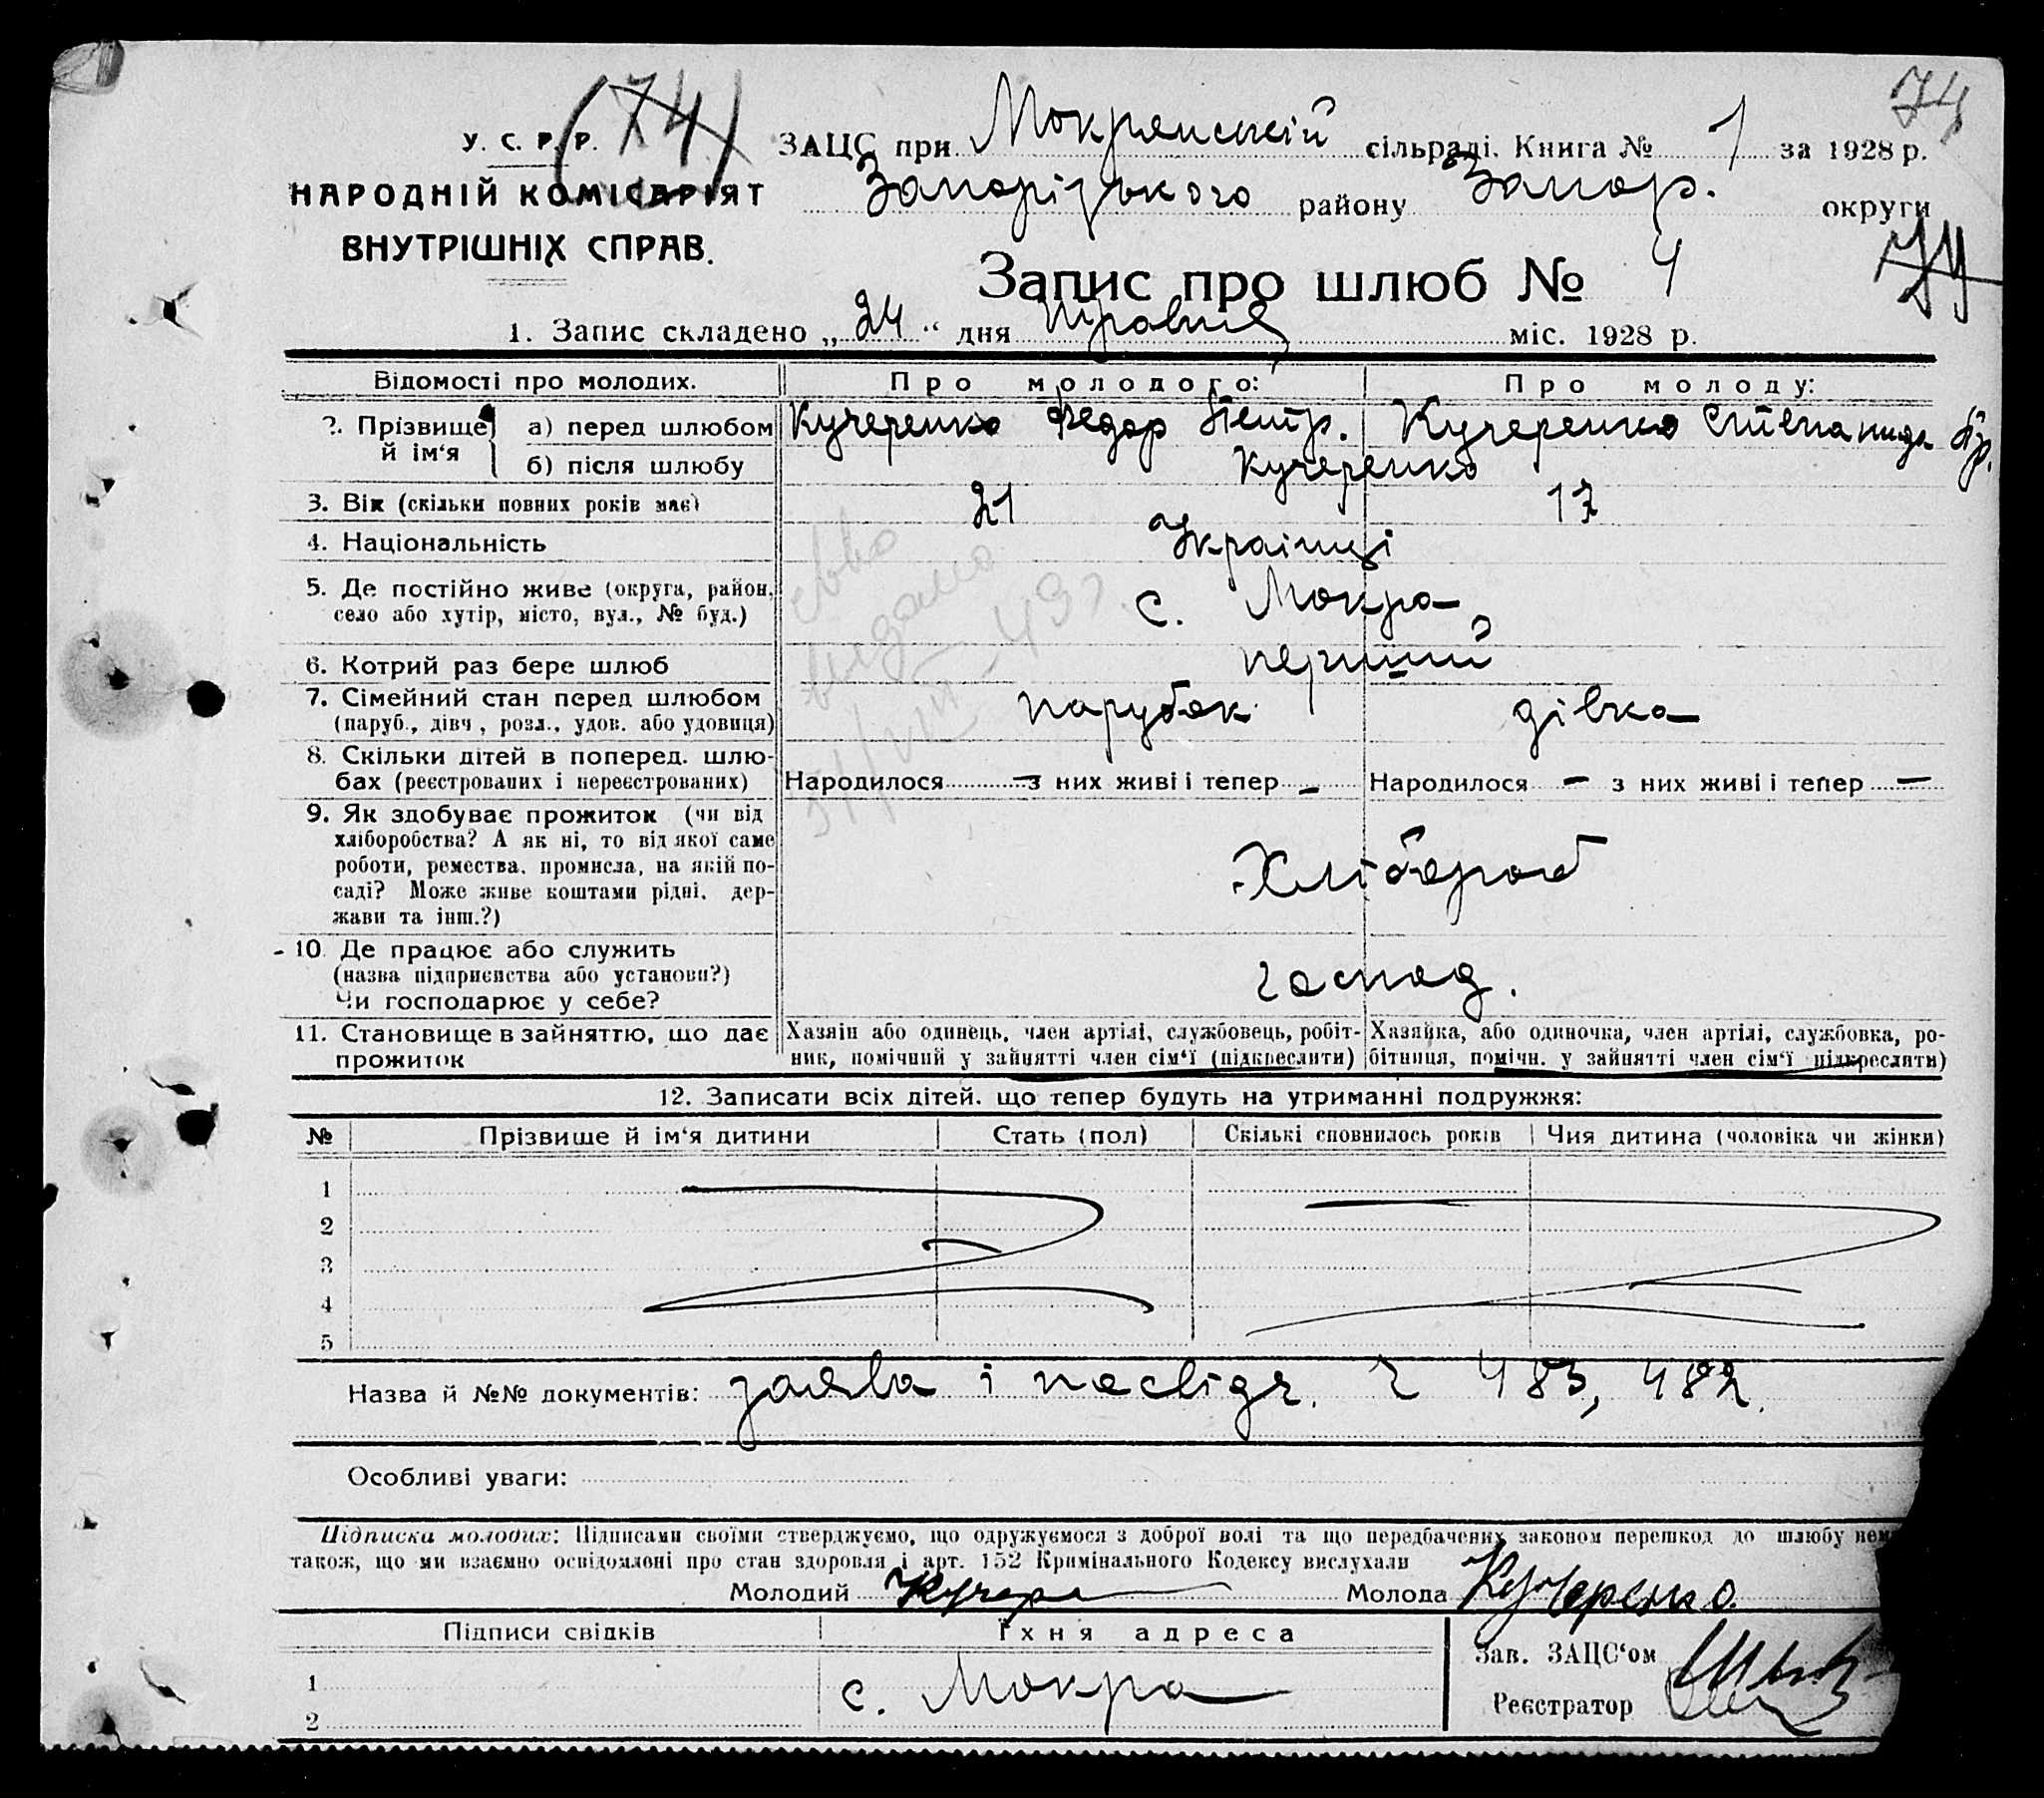 74
(74)
У. С. Р. Р. ЗАЦС при Мокрянській сільраді. Книга № 1 за 1928 р.
НАРОДНІЙ КОМІСАРІЯТ Запорізького району Запор. округи
ВНУТРІШНІХ СПРАВ.
74
Запис про шлюб № 4
1. Запис складено „24" дня травня міс. 1928 р.
Відомості про молодих. Про молодого: Про молоду:
2. Прізвище й ім'я а) перед шлюбом Кучеренко Федор Петр. Кучеренко Степанида Гр.
б) після шлюбу Кучеренко
3. Вік (скільки повних років має) 21 17
4. Національність Українці
5. Де постійно живе (округа, район,
село або хутір, місто, вул., № буд.) с. Мокра
6. Котрий раз бере шлюб перший
7. Сімейний стан перед шлюбом парубок дівка
(паруб., дівч., розл., удов. або удовиця)
8. Скільки дітей в поперед. шлю-
бах (реєстрованих і нереєстрованих) Народилося — з них живі і тепер — Народилося — з них живі і тепер —
9. Як здобуває прожиток (чи від
хліборобства? А як ні, то від якої саме
роботи, ремества, промисла, на якій по- Хлібороб
саді? Може живе коштами рідні, дер-
жави та інш.?)
10. Де працює або служить
(назва підприємства або установи?) господ.
Чи господарює у себе?
11. Становище в зайняттю, що дає Хазяїн або одинець, член артілі, службовець, робіт- Хазяйка, або одиночка, член артілі, службовка, ро-
прожиток ник, помічний у зайнятті член сім'ї (підкреслити) бітниця, помічн. у зайнятті член сім'ї підкреслити)
видано
12. Записати всіх дітей, що тепер будуть на утриманні подружжя:
№ Прізвище й ім'я дитини Стать (пол) Скількі сповнилось років Чия дитина (чоловіка чи жінки)
1
2
3
4
5
Назва й №№ документів: заява і посвідч. ч 483, 482.
Особливі уваги:
Підписка молодих: Підписами своїми стверджуємо, що одружуємося з доброї волі та що передбачених законом перешкод до шлюбу нем
також, що ми взаємно освідомлоні про стан здоровля і арт. 152 Кримінального Кодексу вислухали
Молодий Кучере Молода Кучеренко
Підписи свідків Їхня адреса
Зав. ЗАЦС'ом
1 с. Мокра
Реєстратор
2